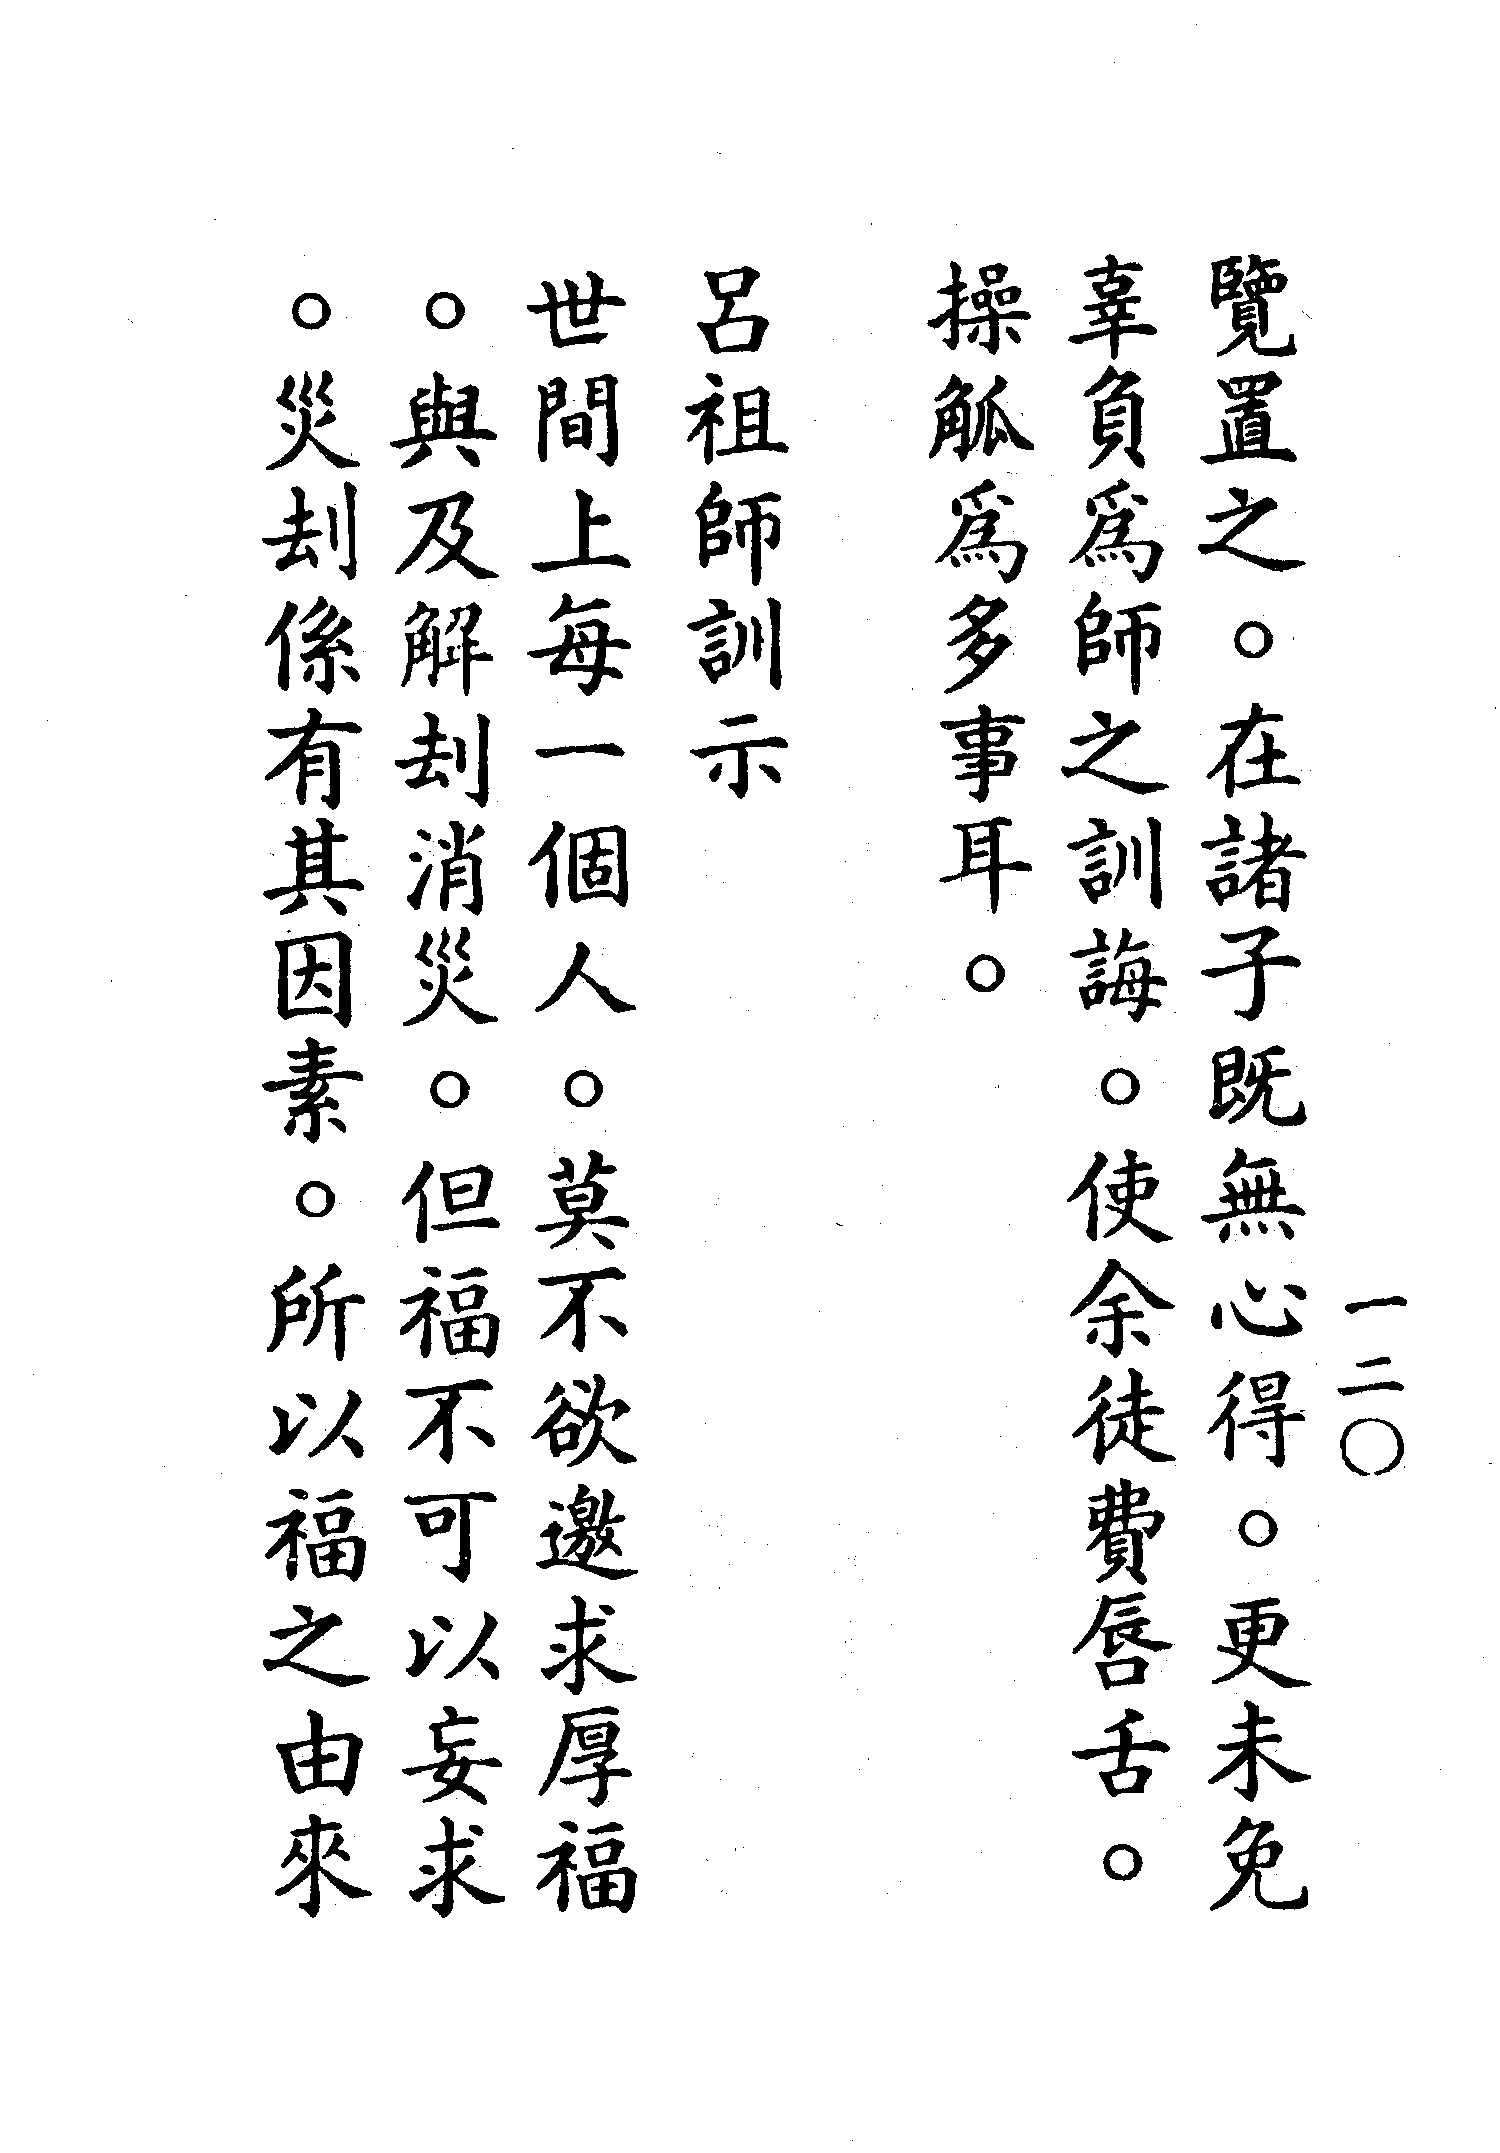 一二〇
覽置之。在諸子既無心得。更未免
辜負爲師之訓誨。使余徒費唇舌。
操觚爲多事耳。
呂祖師訓示
世間上每一個人。莫不欲邀求厚福
。與及解刦消災。但福不可以妄求
。災刦係有其因素。所以福之由來